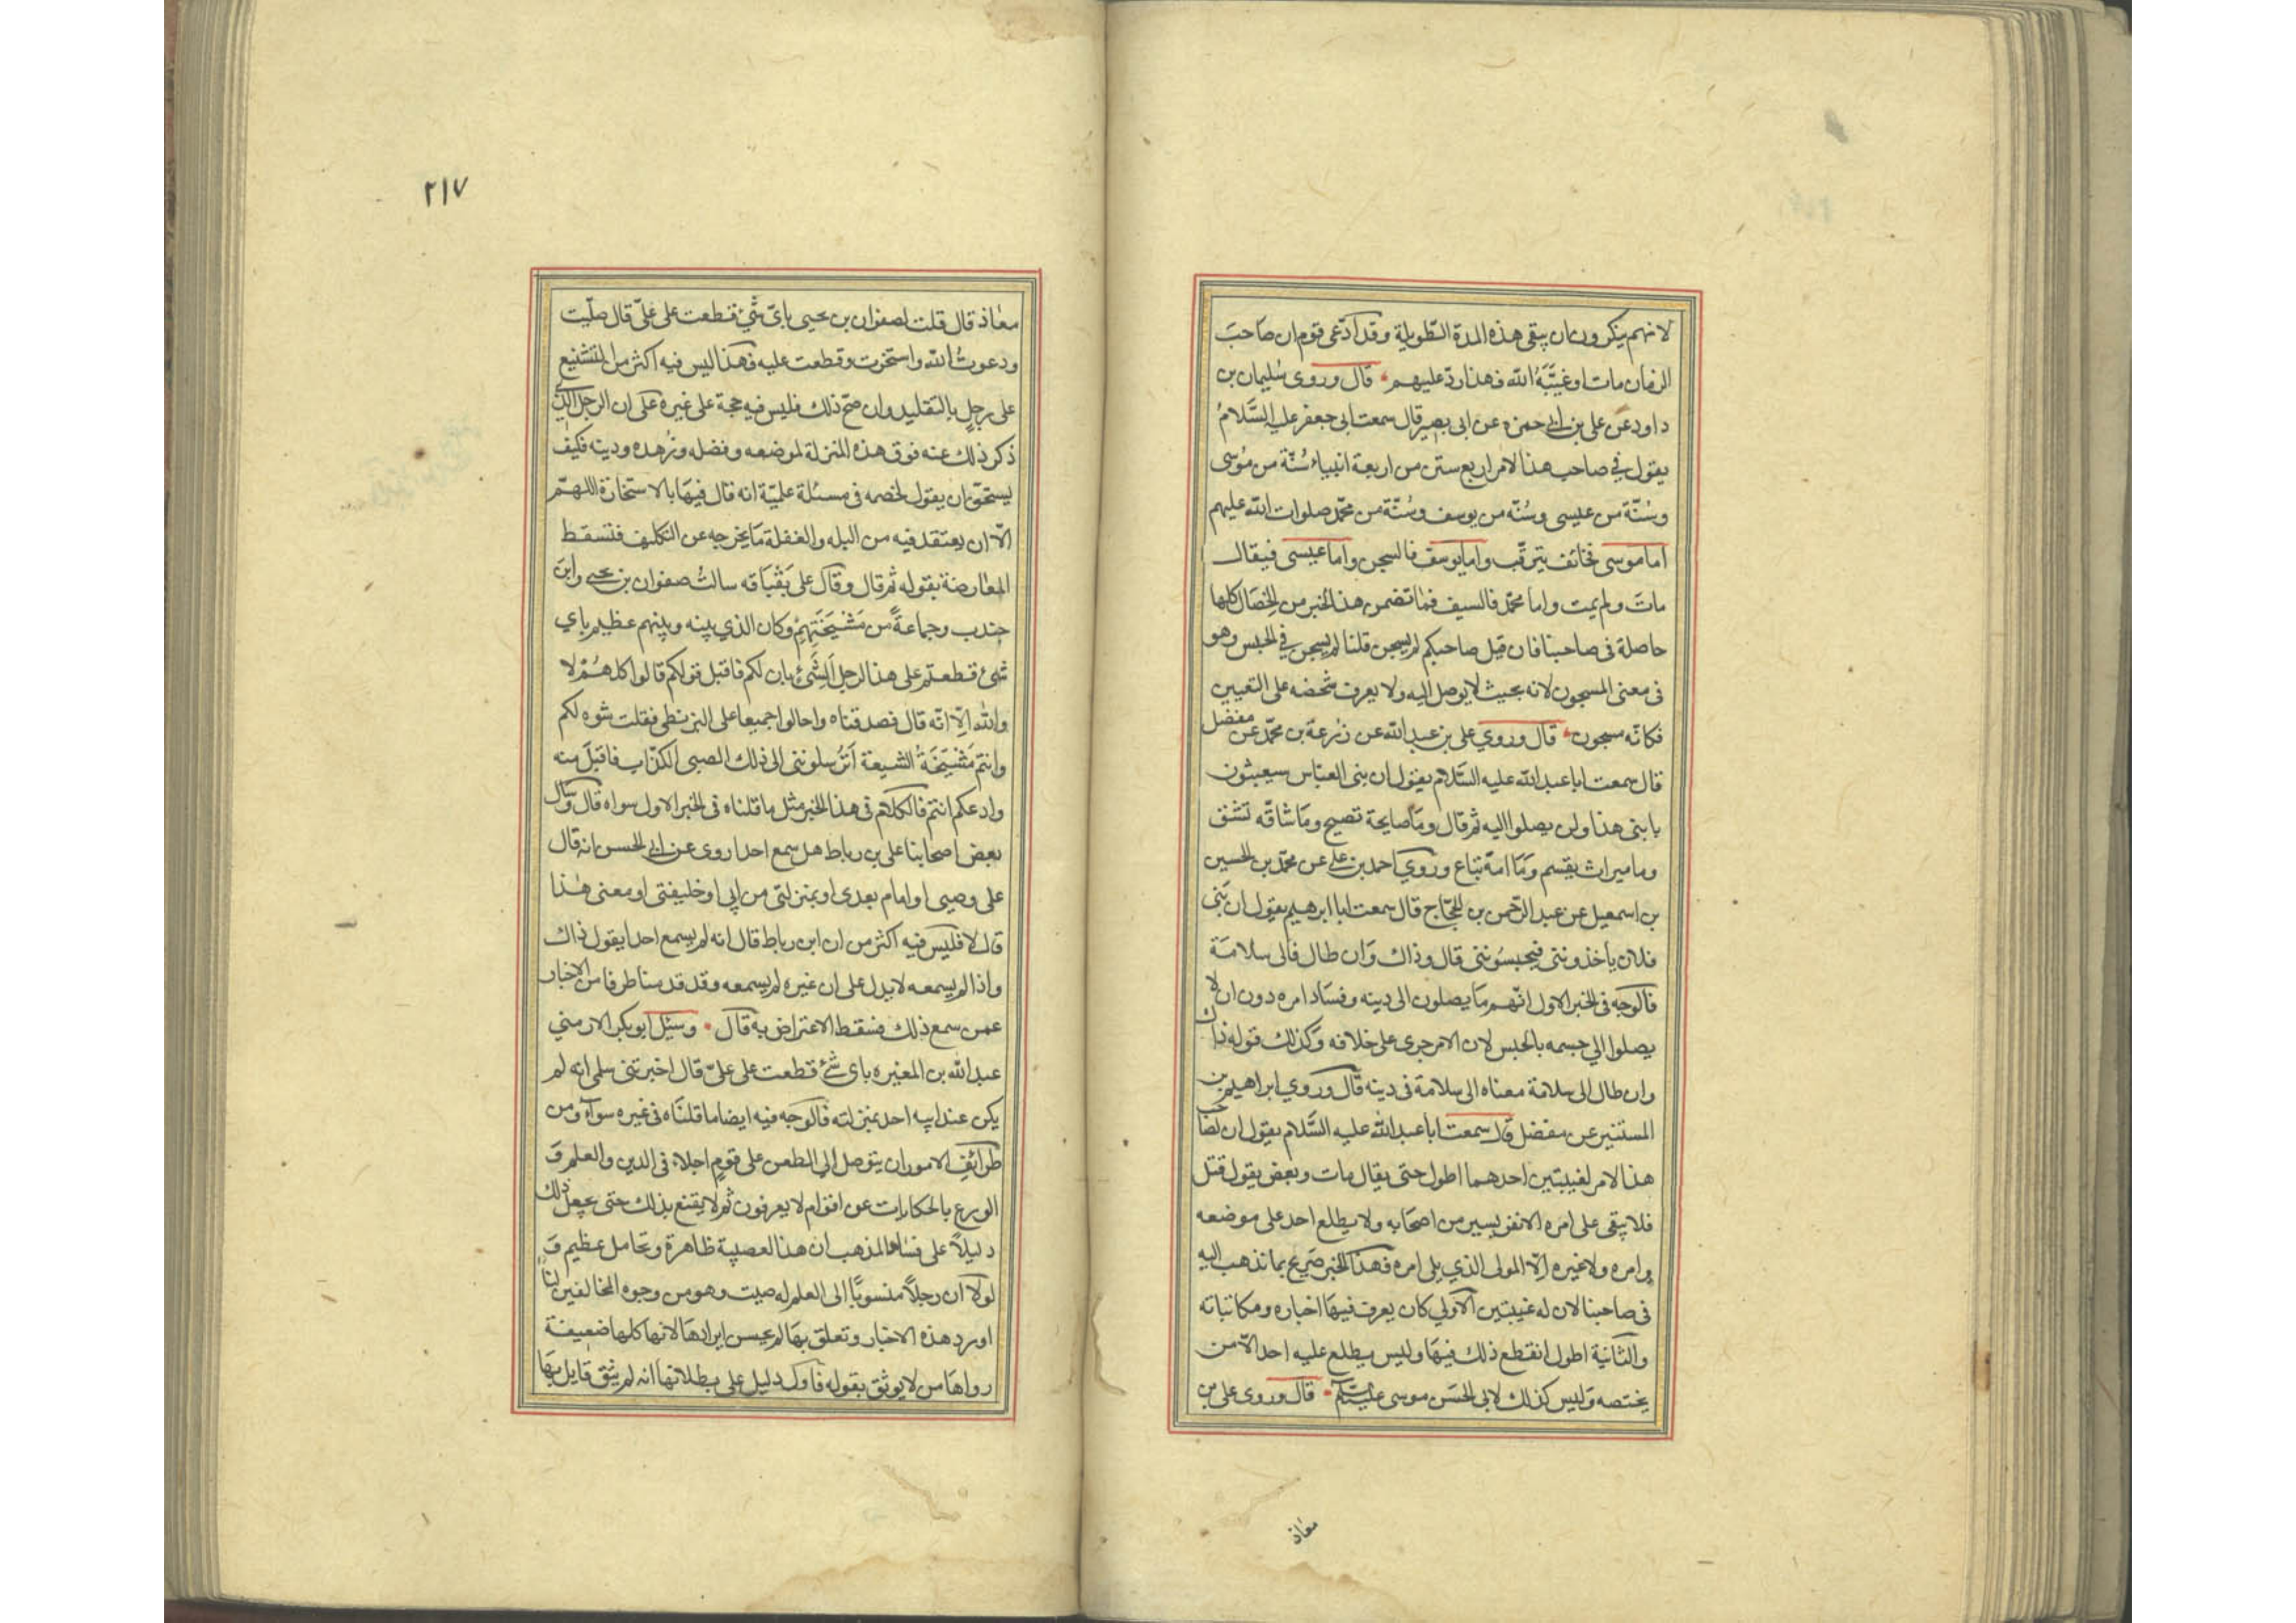 لانهم ينكرون ان يبقى هذه المدة الطويلة وقد ادّعى قوم ان صاحبَ
الزمان مات او غيّبَهُ الله فهذا ردّ عليهم قال وروى سُليمان بن
داود عن على بن ابى حمزه عن ابى بصير قال سمعت ابى جعفر عليه السَّلامُ
يقول في صاحب هذا الامر اربع سنن من اربعة انبياء سُنّة من مُوسى
وسُنّة من عيسى وسُنّه من يوسف وسُنّة من محمّد صلوات الله عليهم
اما موسى فخائف يترقّب واما يوسف فالسجن واما عيسى فيقال
ماتَ ولم يمت واما محمّد فالسيف فما تضمن هذا الخبر من الخصَال كلها
حاصلة فى صاحبنا فان قيل صاحبكم لم يسجن قلنا لم يسجن في الحبس وهو
فى معنى المسجون لانه بحيث لا يوصل اليه ولا يعرف شخصه على التعيين
فكانّه مسجون قال وروي على بن عبد الله عن زُرعة بن محمّد عن مفضل
قال سمعت ابا عبد الله عليه السَّلام يقول ان بنى العبّاس سيعبثون
بابنى هذا ولن يصلوا اليه ثم قال ومَا صايحة تصيح ومَا شاقّه تشقق
وما ميراث يقسم ومَا امة تباع وروي احمد بن على عن محمّد بن الحسين
بن اسمعيل عن عبد الرّحمن بن الحجّاج قال سمعت ابا ابرهيم يقول ان بَنى
فلان ياخذوننى فيحبسُوننى قال وذاك وَان طال فالى سلامَة
فالوجه فى الخبر الاول انّهم مَا يصلون الى دينه وفسَاد امره دون ان لا
يصلوا الي جسمه بالحبس لان الامر جرى على خلافه وكذلك قوله ذاك
وان طال الى سلامة معناه الى سلامة فى دينه قال وروي ابراهيم بن
المستنير عن مفضل قال سمعت ابا عبد الله عليه السَّلام يقول ان لصاحب
هذا الامر لغيبتين احدهما اطول حتى يقال مات وبعض يقول قتل
فلا يبقى على امره الا نفر يسير من اصحَابه ولا يطلع احد على موضعه
وامره ولا غيره الّا المولى الذي يلى امره فهذا الخبر صَريح بما نذهب اليه
فى صاحبنا لان له غيبتين الاولي كان يعرف فيهَا اخباره ومكاتباته
والثانية اطول انقطع ذلك فيهَا وليس يطلع عليه احد الّا من
يختصه وَليس كذلك لابي الحسَن موسى عليه السّلم قال وروى على بن
معاذ
٢١٧
معاذ قال قلت لصفوان بن يحيى باىّ شئ قطعت على علىّ قال صلّيت
ودعوتُ الله واستخرت وقطعت عليه فهذا ليس فيه اكثر من التشنيع
على رجلٍ بالتقليد وان صحّ ذلك فليس فيه حجة على غيره على ان الرجل الذي
ذكر ذلك عنه فوق هذه المنزلة لموضعه وفضله وزُهده ودينه فكيفَ
يستحقّ ان يقول لخصمه فى مسئلة علميّة انه قال فيهَا بالاستخارة اللهمّ
الّا ان يعتقد فيه من البله والغفلة مَا يخرجه عن التكليف فتسقط
المعارضة بقوله ثم قال وقال على بَقْبَاقه سالتُ صفوان بن يحيى وابن
جندب وجماعةً من مَشْيَخَتِهِمُ وكان الذي بينه وبينهم عظيم باي
شئ قطعتم على هذا الرجل الشئ بان لكم فاقبل قولكم قالوا كلهُمْ لا
والله الّا انّه قال فصدقناه واحالوا جميعا على البزنطى فقلت سَوه لكم
وانتم مَشْيَخَةُ الشيعة اترسلوننى الى ذلك الصبى الكذّاب فاقبَلَ منه
وادعكم انتم فالكلام فى هذا الخبر مثل ما قلناه فى الخبر الاول سواه قال وسال
بعض اصحابنا على بن رباط هل سمع احدا روى عن ابى الحسن انه قال
على وصيى او امام بعدى او بمنزلتى من ابى او خليفتى او معنى هٰذا
قال لا فليس فيه اكثر من ان ابن رباط قال انه لم يسمع احدا يقول ذاك
واذا لم يسمعه لا يدل على ان غيره لم يسمعه وقد قدمنا طرفا من الاخبار
عمن سمع ذلك فسقط الاعتراض به قال وسئل ابو بكر الارمني
عبد الله بن المغيره باى شئ قطعت على علىّ قال اخبرتنى سلمى انه لم
يكن عند ابيه احد بمنزلته فالوجه فيه ايضا ما قلنَاه فى غيره سوآء ومن
طرائف الامور ان يتوصل الى الطعن على قومٍ اجلاء فى الدين والعلم وَ
الورع بالحكايات عن اقوام لا يعرفون ثم لا يقنع بذلك حتى يجعل ذلك
دليلاً على فساد المذهب ان هذا العصبية ظاهرة وتحامل عظيم وَ
لولا ان رجلاً منسوبًا الى العلم له صيت وهو من وجوه المخالفين لنَا
اورد هذه الاخبار وتعلق بهَا لم يحسن ايرادهَا لانها كلها ضعيفة
رواهَا من لا يوثق بقوله فاول دليل على بطلانها انه لم يثق قايل بهَا